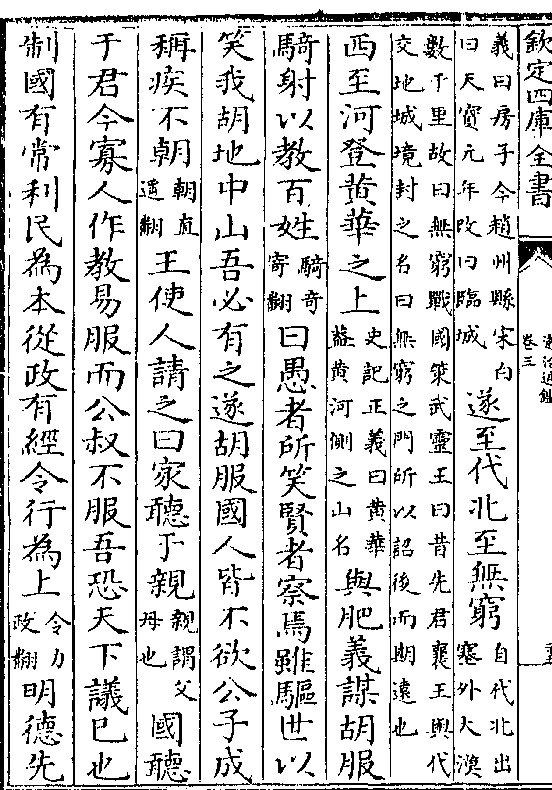 欽定四庫全書
卷三
義曰房子今趙州縣宋白
曰天寶元年改曰臨城
遂至代北至無窮
自代北出
塞外大漠
數千里故曰無窮戰國策武靈王曰昔先君襄王與代
交地城境封之名曰無窮之門所以詔後而期遠也
西至河登黄華之上
史記正義曰黄華
葢黄河側之山名
與肥義謀胡服
騎射以教百姓
騎奇
寄翻
曰愚者所笑賢者察焉雖驅世以
笑我胡地中山吾必有之遂胡服國人皆不欲公子成
稱疾不朝
朝直
遥翻
王使人請之曰家聽于親
親謂父
母也
國聽
于君今寡人作教易服而公叔不服吾恐天下議已也
制國有常利民為本從政有經令行為上
令力
政翻
明德先